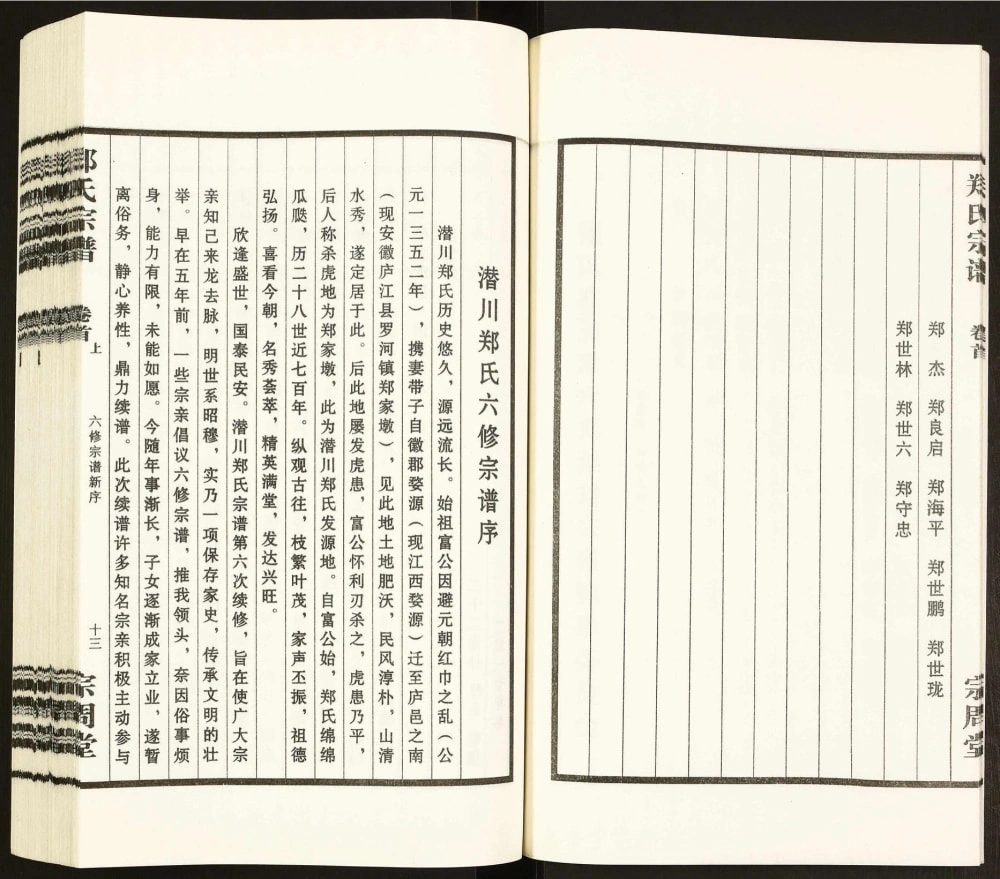 郑氏宗谱 卷首
宗周堂
郑 杰 郑良启 郑海平 郑世鹏 郑世珑
郑世林 郑世六 郑守忠
潜川郑氏六修宗谱序
潜川郑氏历史悠久，源远流长。始祖富公因避元朝红巾之乱（公
元一三五二年），携妻带子自徽郡婺源（现江西婺源）迁至庐邑之南
（现安徽庐江县罗河镇郑家墩），见此地土地肥沃，民风淳朴，山清
水秀，遂定居于此。后此地屡发虎患，富公怀利刃杀之，虎患乃平，
后人称杀虎地为郑家墩，此为潜川郑氏发源地。自富公始，郑氏绵绵
瓜瓞，历二十八世近七百年。纵观古往，枝繁叶茂，家声丕振，祖德
弘扬。喜看今朝，名秀荟萃，精英满堂，发达兴旺。
欣逢盛世，国泰民安。潜川郑氏宗谱第六次续修，旨在使广大宗
亲知己来龙去脉，明世系昭穆，实乃一项保存家史，传承文明的壮
举。早在五年前，一些宗亲倡议六修宗谱，推我领头，奈因俗事烦
身，能力有限，未能如愿。今随年事渐长，子女逐渐成家立业，遂暂
离俗务，静心养性，鼎力续谱。此次续谱许多知名宗亲积极主动参与
郑氏宗谱 卷首 上 六修宗谱新序 十三 宗周堂